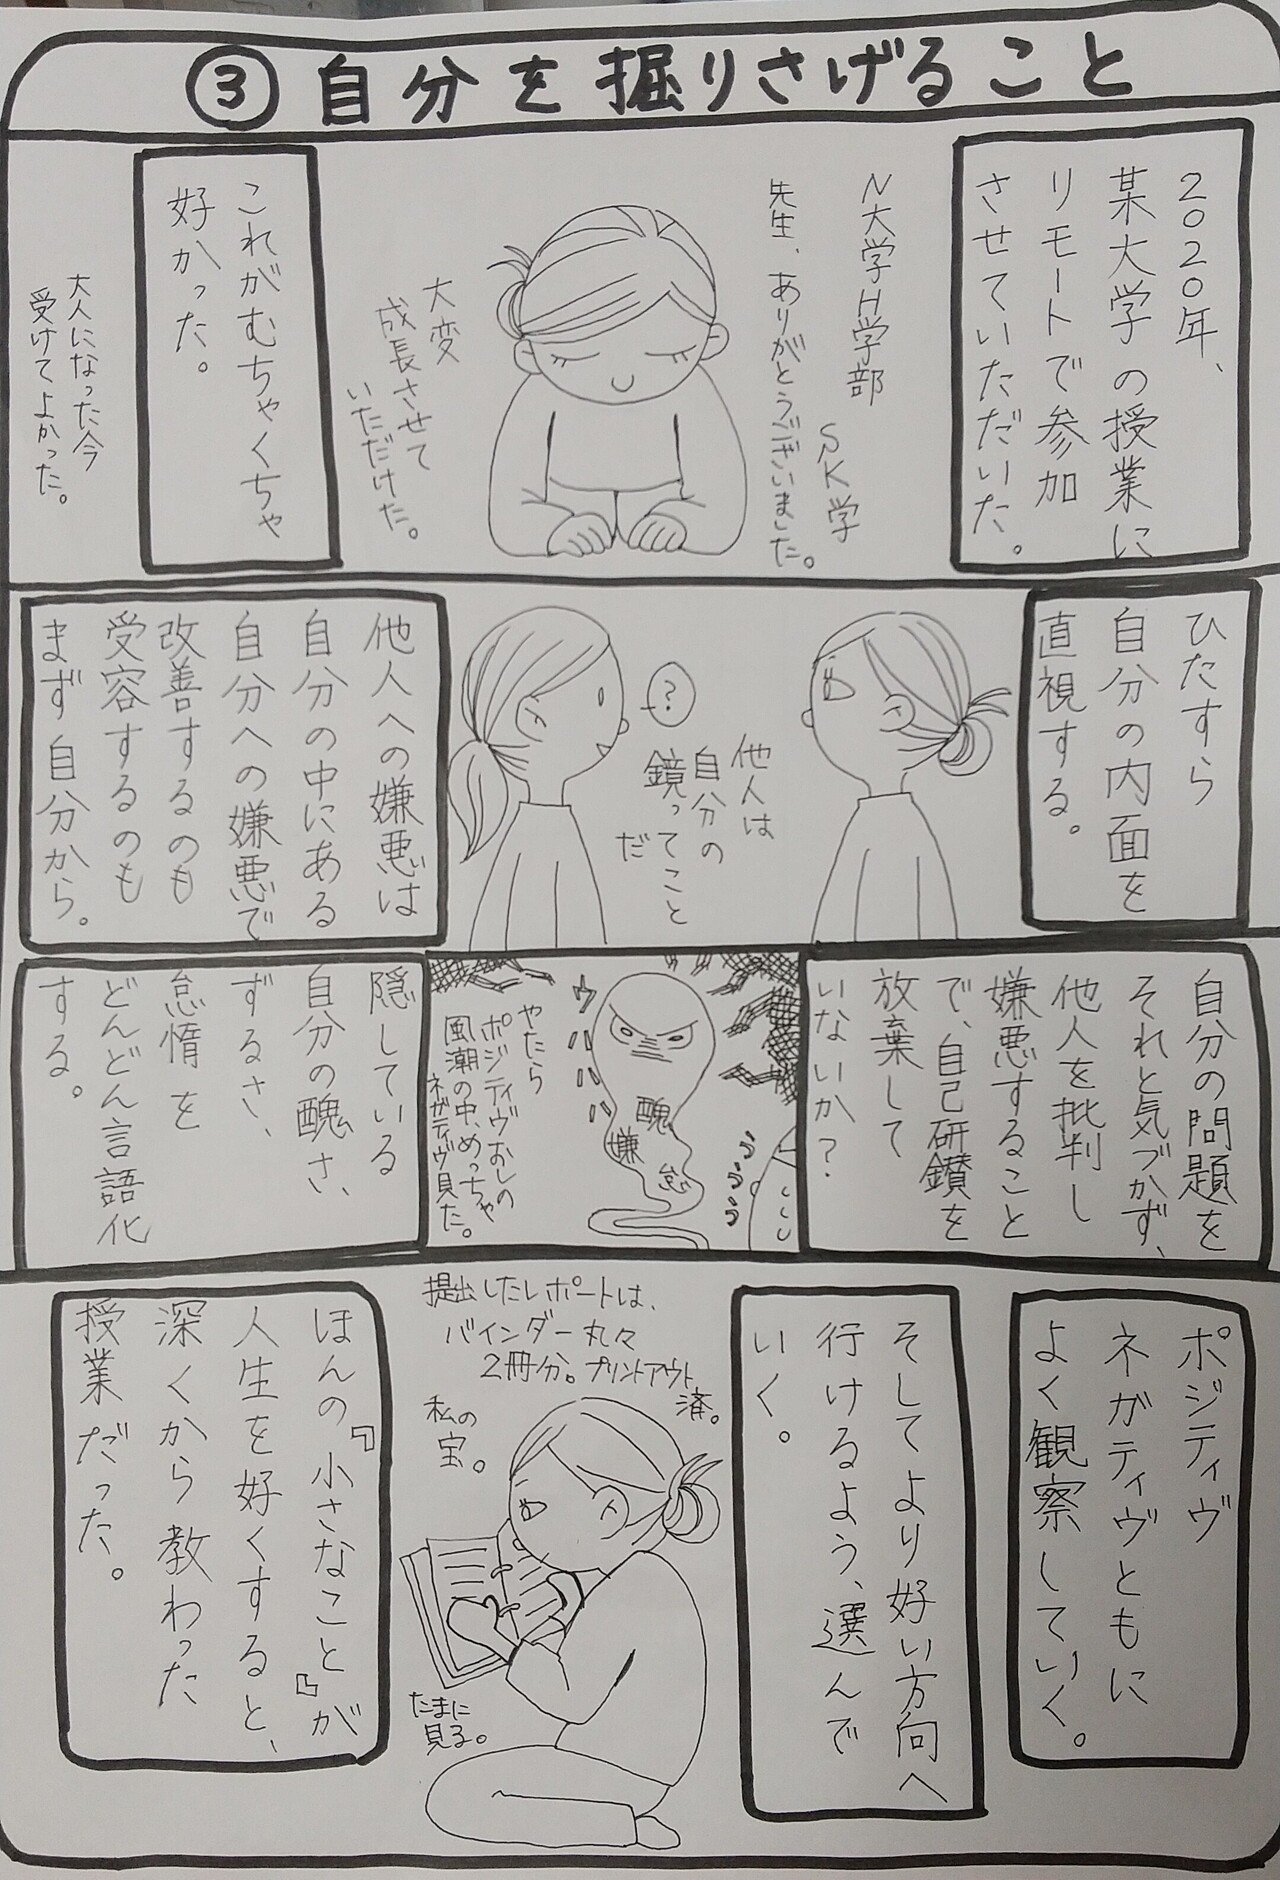 ③自分を掘りさげること
2020年、
某大学の授業に
リモートで参加
させていただいた。
N大学H学部
SK学
先生、ありがとうございました。
大変
成長させて
いただけた。
これがむちゃくちゃ
好かった。
大人になった今
受けてよかった。
ひたすら
自分の内面を
直視する。
他人は
自分の
鏡ってこと
だ
?
他人への嫌悪は
自分の中にある
自分への嫌悪で
改善するのも
受容するのも
まず自分から。
自分の問題を
それと気づかず、
他人を批判し
嫌悪すること
で、自己研鑚を
放棄して
いないか?
ううう
醜
嫌
怠
ウハハハ
やたら
ポジティヴおしの
風潮の中、めっちゃ
ネガティヴ見た。
隠している
自分の醜さ、
ずるさ、
怠惰を
どんどん言語化
する。
ポジティヴ
ネガティヴともに
よく観察していく。
そしてより好い方向へ
行けるよう、選んで
いく。
提出したレポートは、
バインダー丸々
2冊分。プリントアウト
済。
私の
宝。
たまに
見る。
ほんの『小さなこと』が
人生を好くすると、
深くから教わった
授業だった。